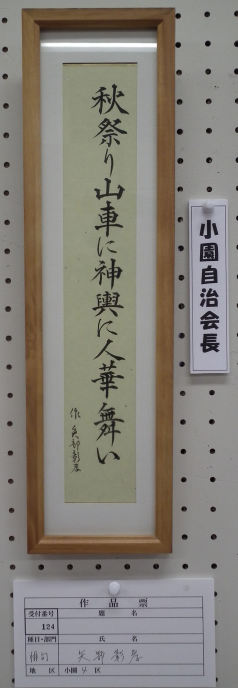 秋祭り山車に神輿に人華舞い
作 矢部彰彦
小園自治会長
作品票
受付番号 題名
124
種目・部門 氏名
俳句 矢部彰彦
地区 小園 4 区